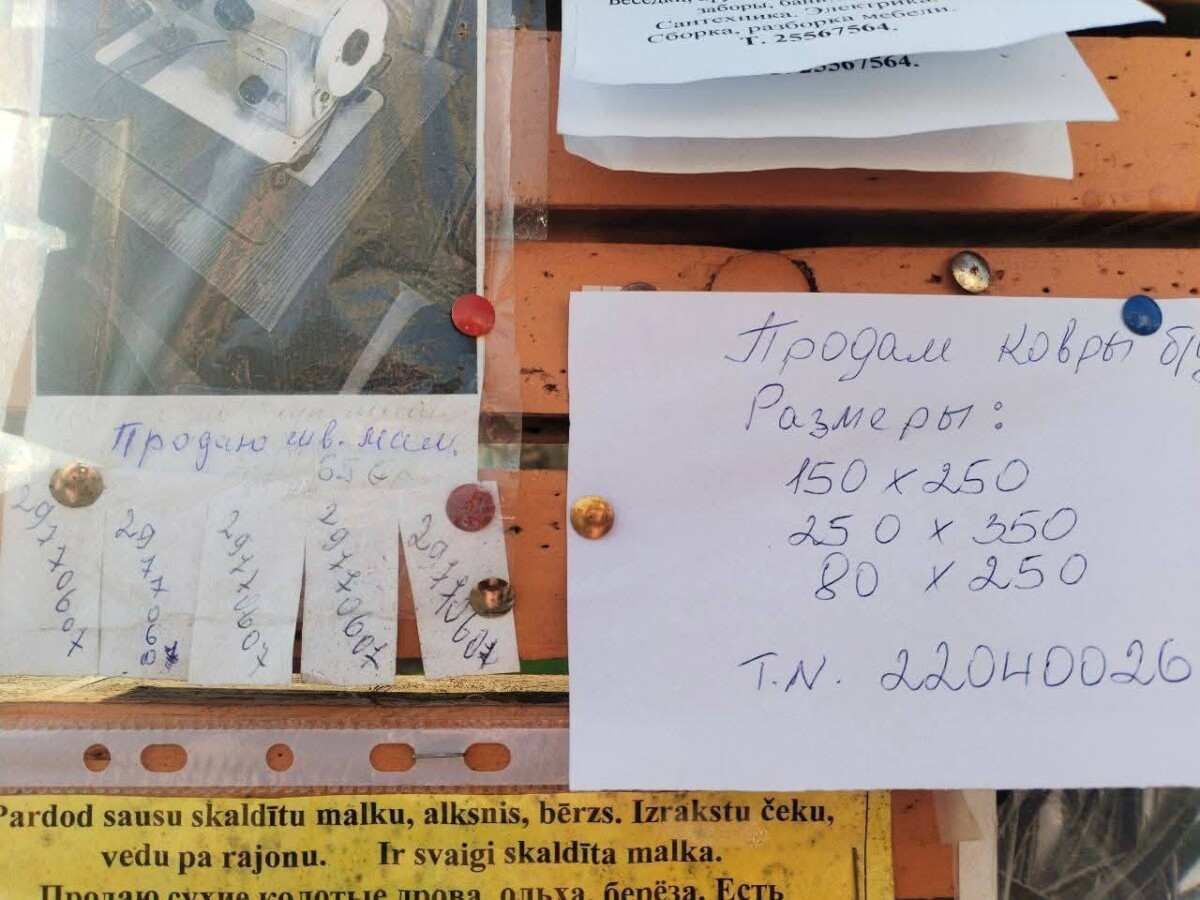 заборы, бани
Сантехника. Электрика,
Сборка, разборка мебели.
Т. 25567564.
25567564.
Продаю шв. маш.
65 Є
29770607
29770607
29770607
29770607
29770607
Продам ковры б/у
Размеры:
150 x 250
250 x 350
80 x 250
T.N. 22040026
Pardod sausu skaldītu malku, alksnis, bērzs. Izrakstu čeku,
vedu pa rajonu. Ir svaigi skaldīta malka.
Продаю сухие колотые дрова, ольха, берёза. Есть